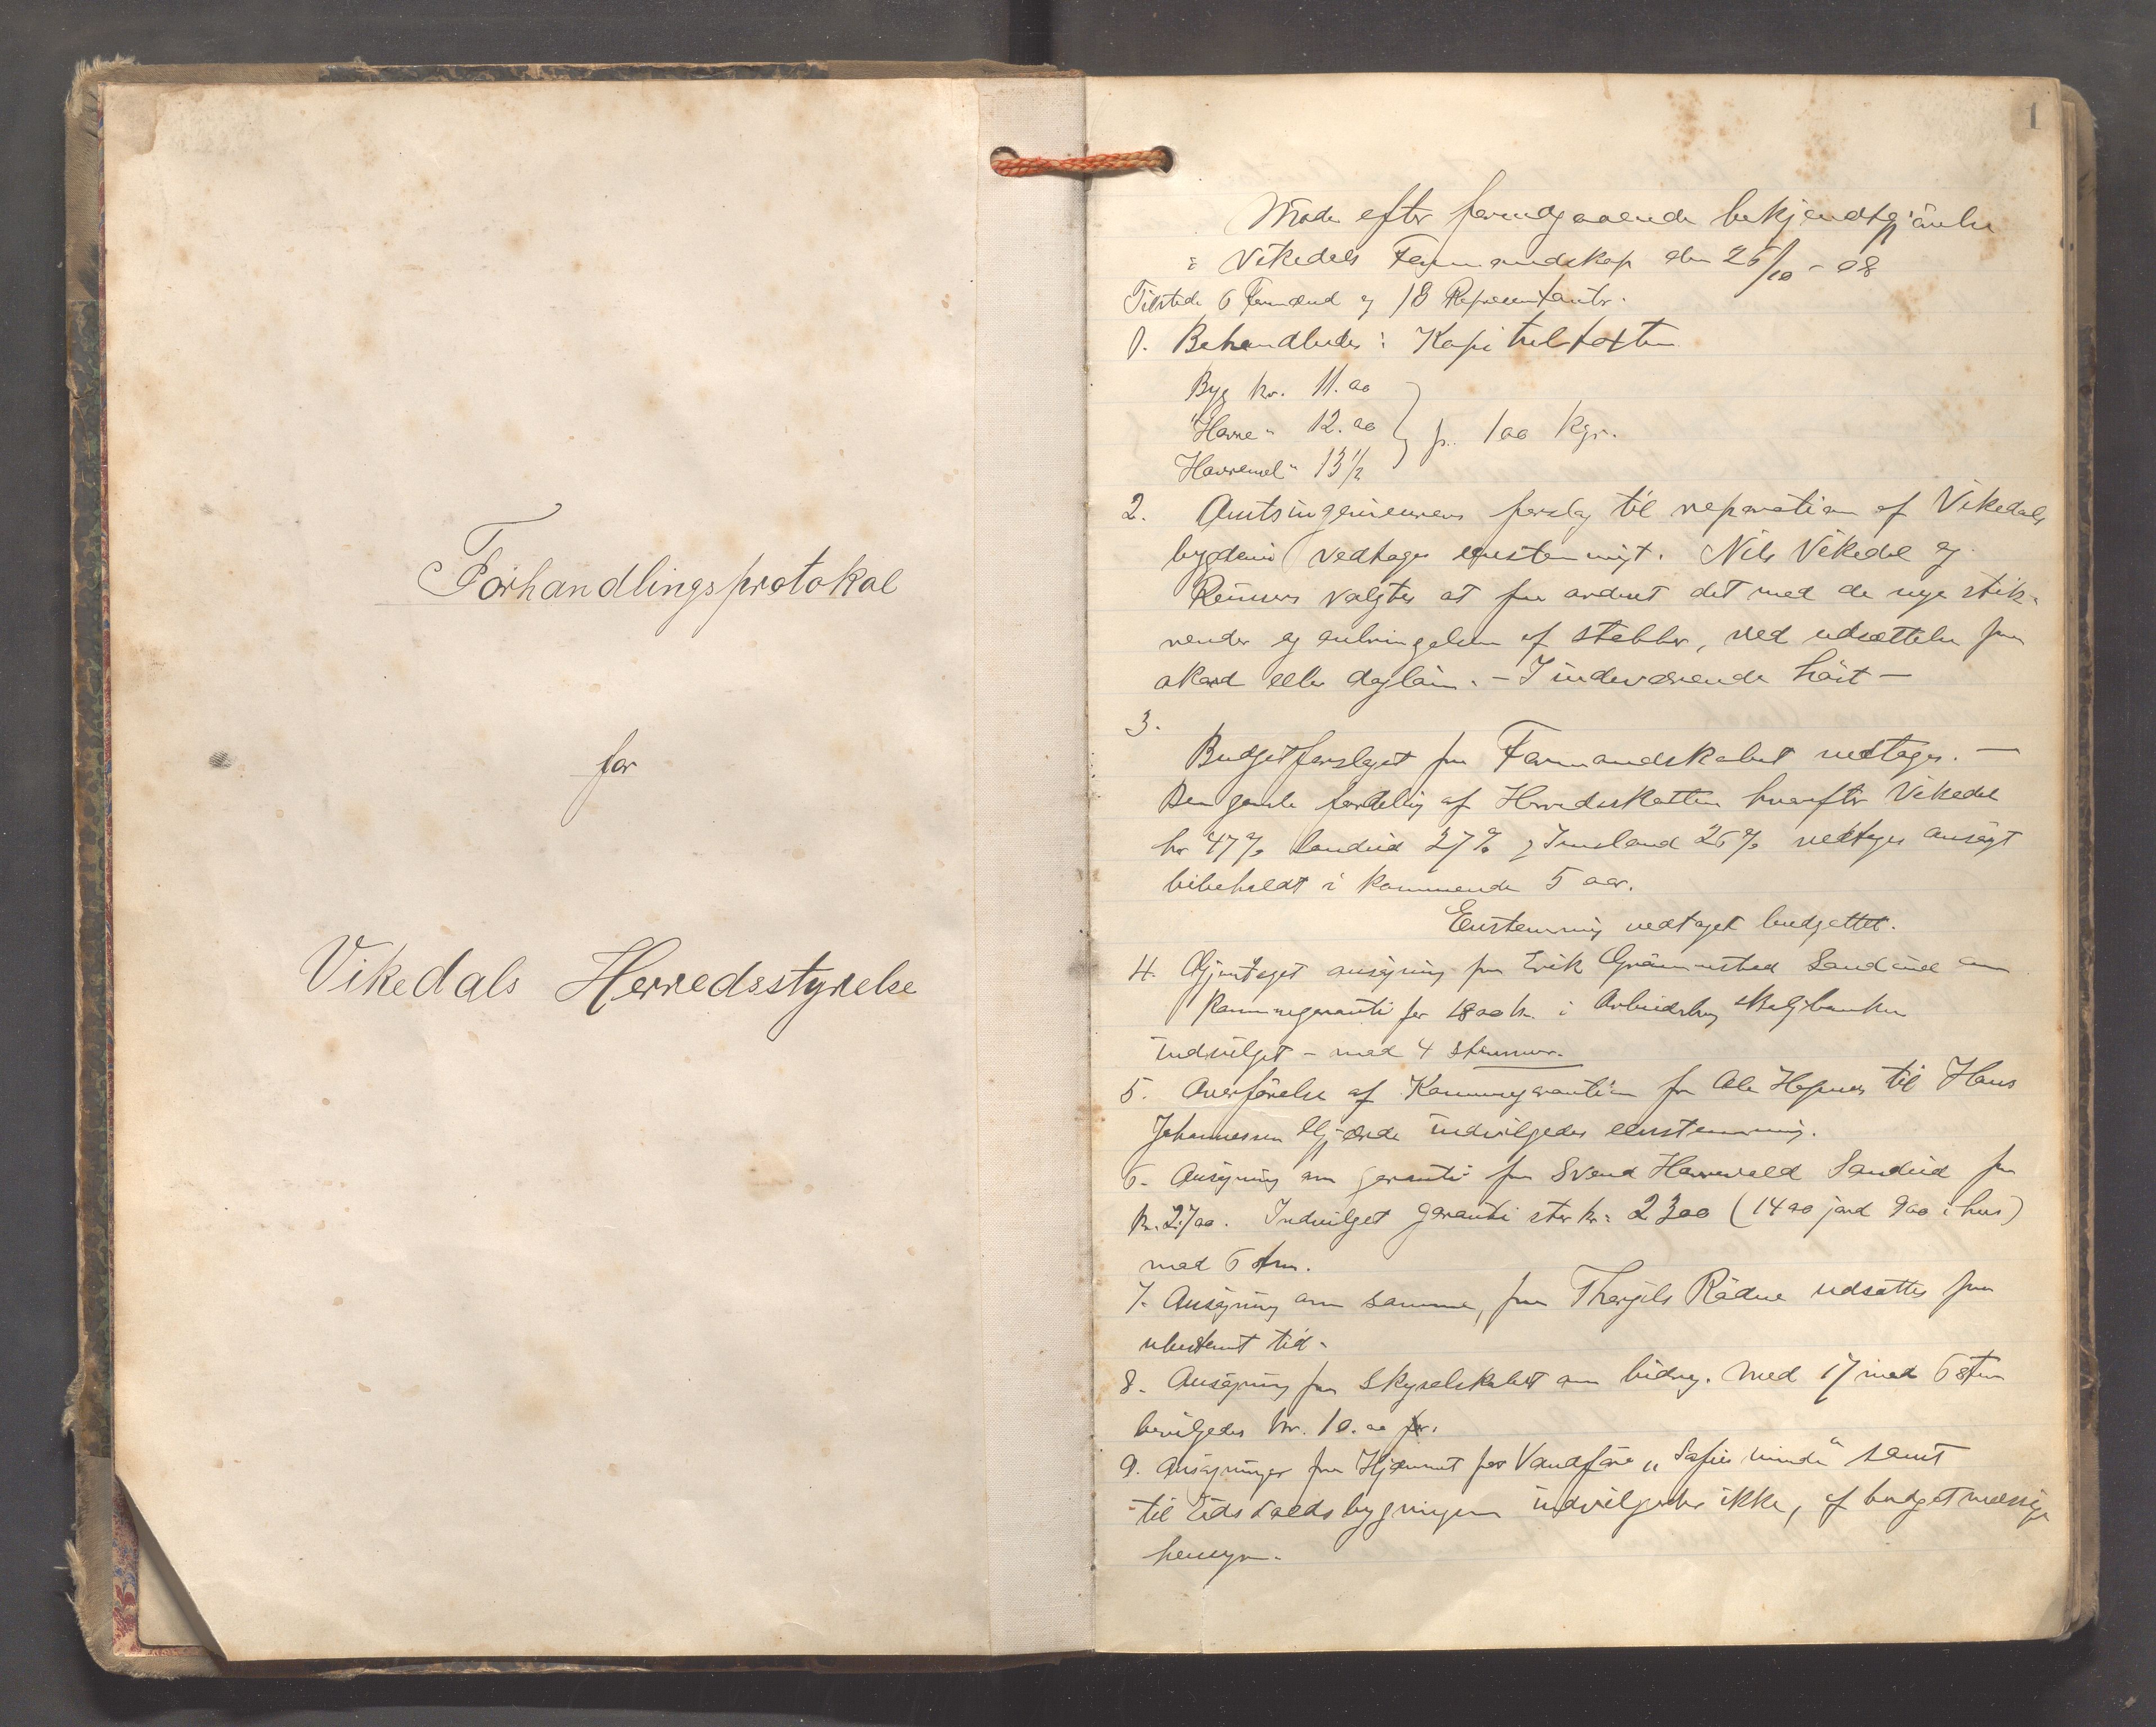 Forhandlingsprotokol
for
Vikedals Herredsstyrelse
1
Møde efter forudgaaende bekjendtgjørelse
i Vikedals Formandskap den 26/10 - 08
Tilstede 6 Formænd og 18 Representanter.
1. Behandledes: Kapiteltaksten
Byg kr. 11.00
Havre " 12.00 } pr. 100 Kgr.
Havremel " 13 1/2
2. Amtsingeniørens forslag til reparation af Vikedals
bygdevei vedtages enstemmigt. Nils Vikedal og
valgtes at faa ordnet det med de nye stik-
render og anbringelsen af stabber, ved udsættelse paa
akord eller dagløn. - I indeværende høst -
3.
Budgetforslaget fra Formandskabet vedtages. -
Den gamle fordeling af Herredsskatten hvorefter Vikedal
har 47% Sandeid 27% og Imsland 26% vedtages ansøgt
bibeholdt i kommende 5 aar.
Enstemmig vedtaget budgettet.
4. Gjentaget ansøgning fra Erik Sandeid om
Kommunegaranti for 1800 kr. i Arbeiderbrug & Boligbanken
indvilget - med 4 stemmer.
5. Overførelse af Kommunegarantien fra Ole til Hans
Johannessen indvilgedes eenstemmig.
6. Ansøgning om garanti fra Svend Sandeid for
kr. 2700. Indvilget garanti stor kr: 2300 (1400 jord 900 i hus)
med 6 stm.
7. Ansøgning om samme, fra Thorgils Rødne udsættes paa
ubestemt tid.
8. Ansøgning fra Skyselskabet om bidrag. Med 17 mod 6 stm
bevilgedes kr. 10.00
9. Ansøgninger fra Hjemmet for Vanføre „Sofies minde“ samt
til Eidsvoldsbygningen indvilgedes ikke, af budgetmæssige
hensyn.